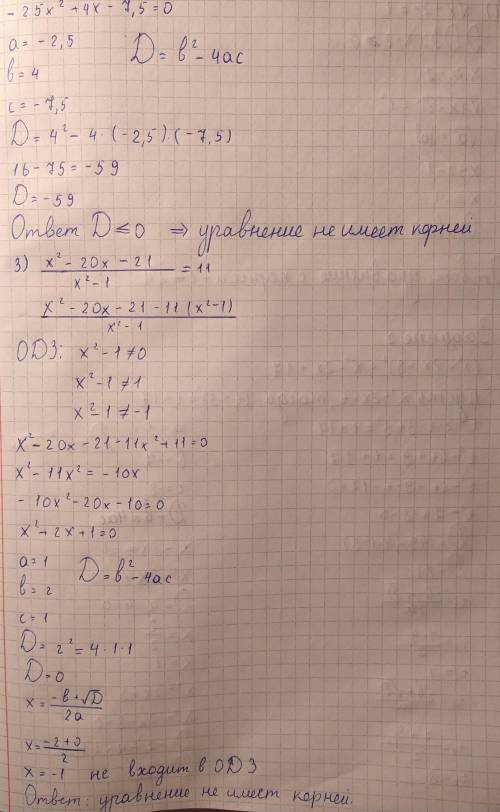 - 25x² + 4x - 7,5 = 0
a = - 2,5
D = b² - 4ac
b = 4
c = - 7,5
D = 4² - 4 · (-2,5) · (-7,5)
16 - 75 = - 59
D = - 59
Ответ D ≤ 0 ⇒ уравнение не имеет корней
3) (x² - 20x - 21)/(x² - 1) = 11
(x² - 20x - 21 - 11(x² - 1))/(x² - 1)
ОДЗ: x² - 1 ≠ 0
x² - 1 ≠ 1
x² - 1 ≠ - 1
x² - 20x - 21 - 11x² + 11 = 0
x² - 11x² = - 10x
- 10x² - 20x - 10 = 0
x² + 2x + 1 = 0
a = 1
D = b² - 4ac
b = 2
c = 1
D = 2² = 4 · 1 · 1
D = 0
x = (-b + √D)/2a
x = (-2 + 0)/2
x = - 1 не входит в ОДЗ
Ответ: уравнение не имеет корней.